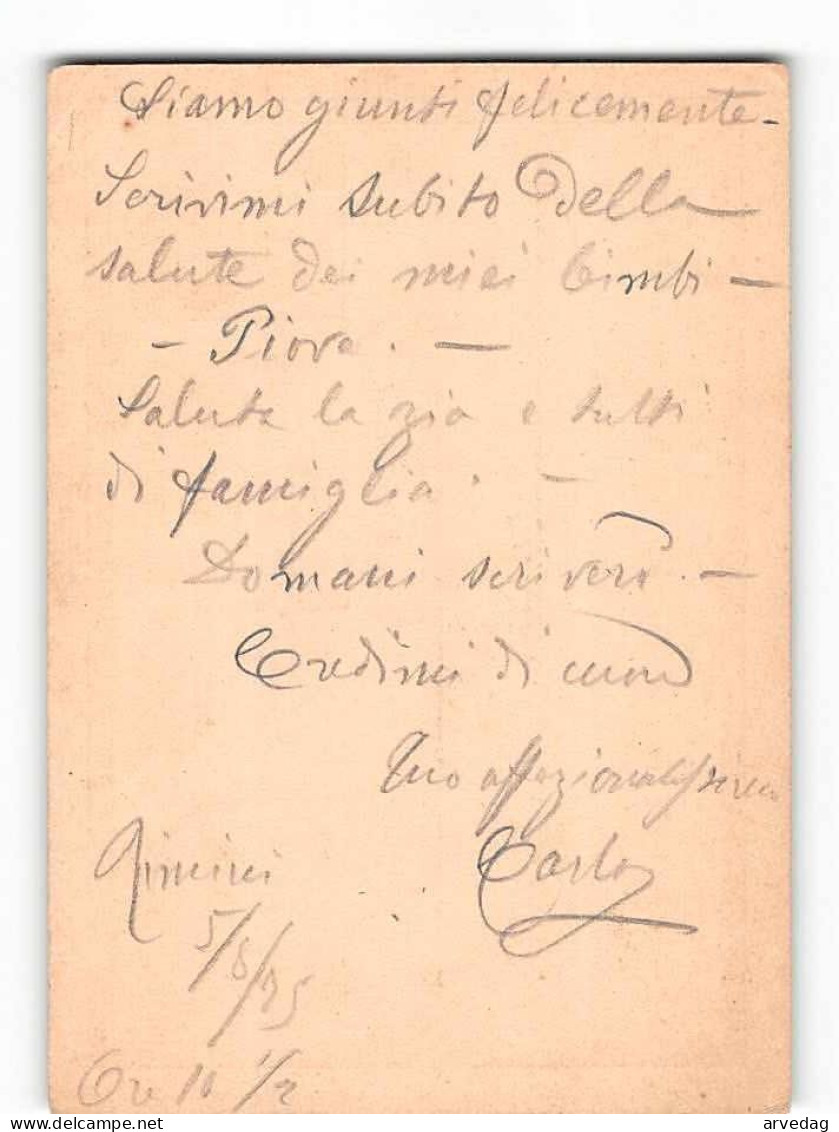 Siamo giunti felicemente -
Scrivimi subito della
salute dei miei bimbi -
- Piove. -
Saluta la zia e tutti
di famiglia. -
Domani scriverò. -
Credimi di cuore
Tuo affezionatissimo
Carlo
Rimini
5/8/75
Ore 10 1/2
delcampe.net
arvedag